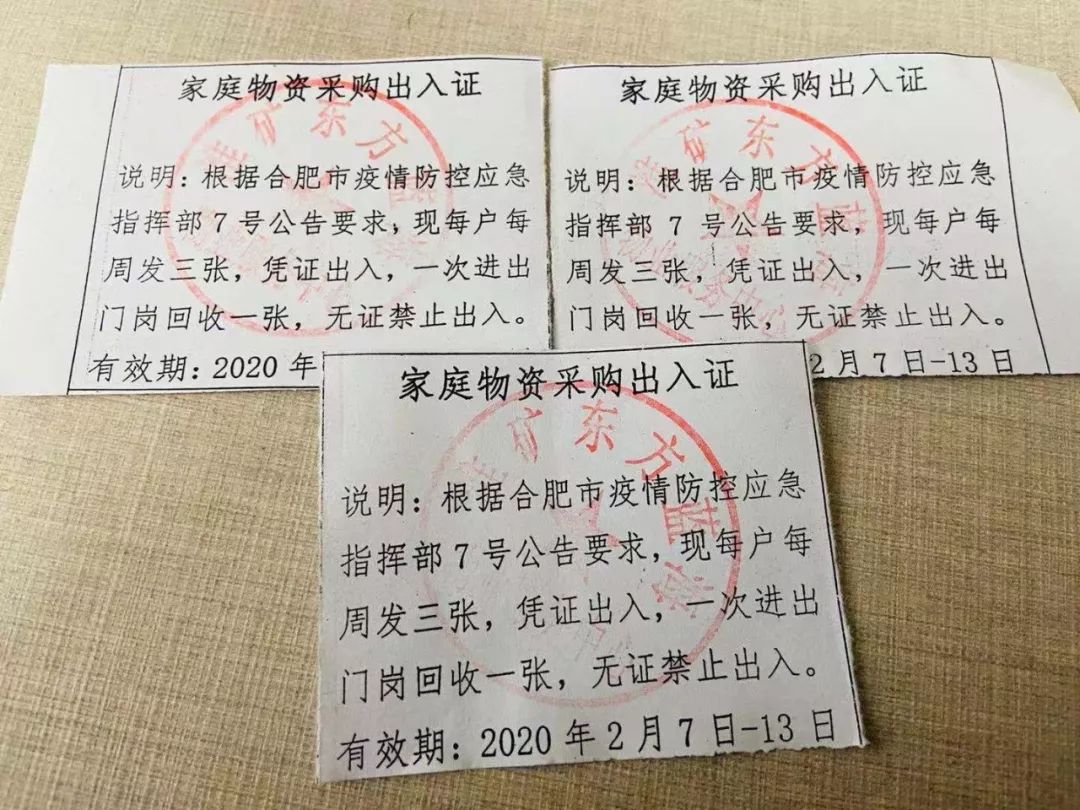 家庭物资采购出入证
说明：根据合肥市疫情防控应急
指挥部7号公告要求，现每户每
周发三张，凭证出入，一次进出
门岗回收一张，无证禁止出入。
有效期：2020年
家庭物资采购出入证
说明：根据合肥市疫情防控应急
指挥部7号公告要求，现每户每
周发三张，凭证出入，一次进出
门岗回收一张，无证禁止出入。
2月7日-13日
家庭物资采购出入证
说明：根据合肥市疫情防控应急
指挥部7号公告要求，现每户每
周发三张，凭证出入，一次进出
门岗回收一张，无证禁止出入。
有效期：2020年2月7日-13日
矿东方蓝
矿东方蓝
服务中心
矿东方蓝